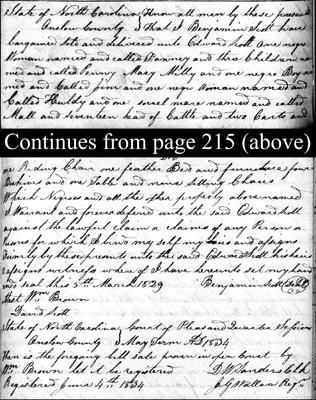 State of North Carolina Know all men by these presents
Onslow County That I Benjamin Scott have
bargained sold and delivered unto Edward Scott One negro
Woman named and called Nanney and three Children na
med and called Penny Mary Milly and one negro Boy na
med and Called Jim and one negro Woman named and
Called Huldy and one sorrel mare named and called
Mall and seventeen head of Cattle and two Carts and
Continues from page 215 (above)
one Riding Chair one feather Bed and furniture four
and one Table and nine Sitting Chairs
Which Negroes and all the other property above named
I Warrant and forever defend unto the said Edward Scott
against the lawful claim or claims of any Person or
sons for which I bind my self my heirs and assigns
firmly by these presents unto the said Edward Scott his heirs
assigns witness where of I have hereunto set my hand
seal this 5th March 1829 Benjamin Scott (Seal)
Test Wm Brown
David Scott
State of North Carolina Court of Pleas and Quarter Sessions
Onslow County May Term AD 1834
Then is the foregoing bill sale proven in open Court by
Wm Brown let it be registered D W Sanders Clk
Registered June 4th 1834 Regr